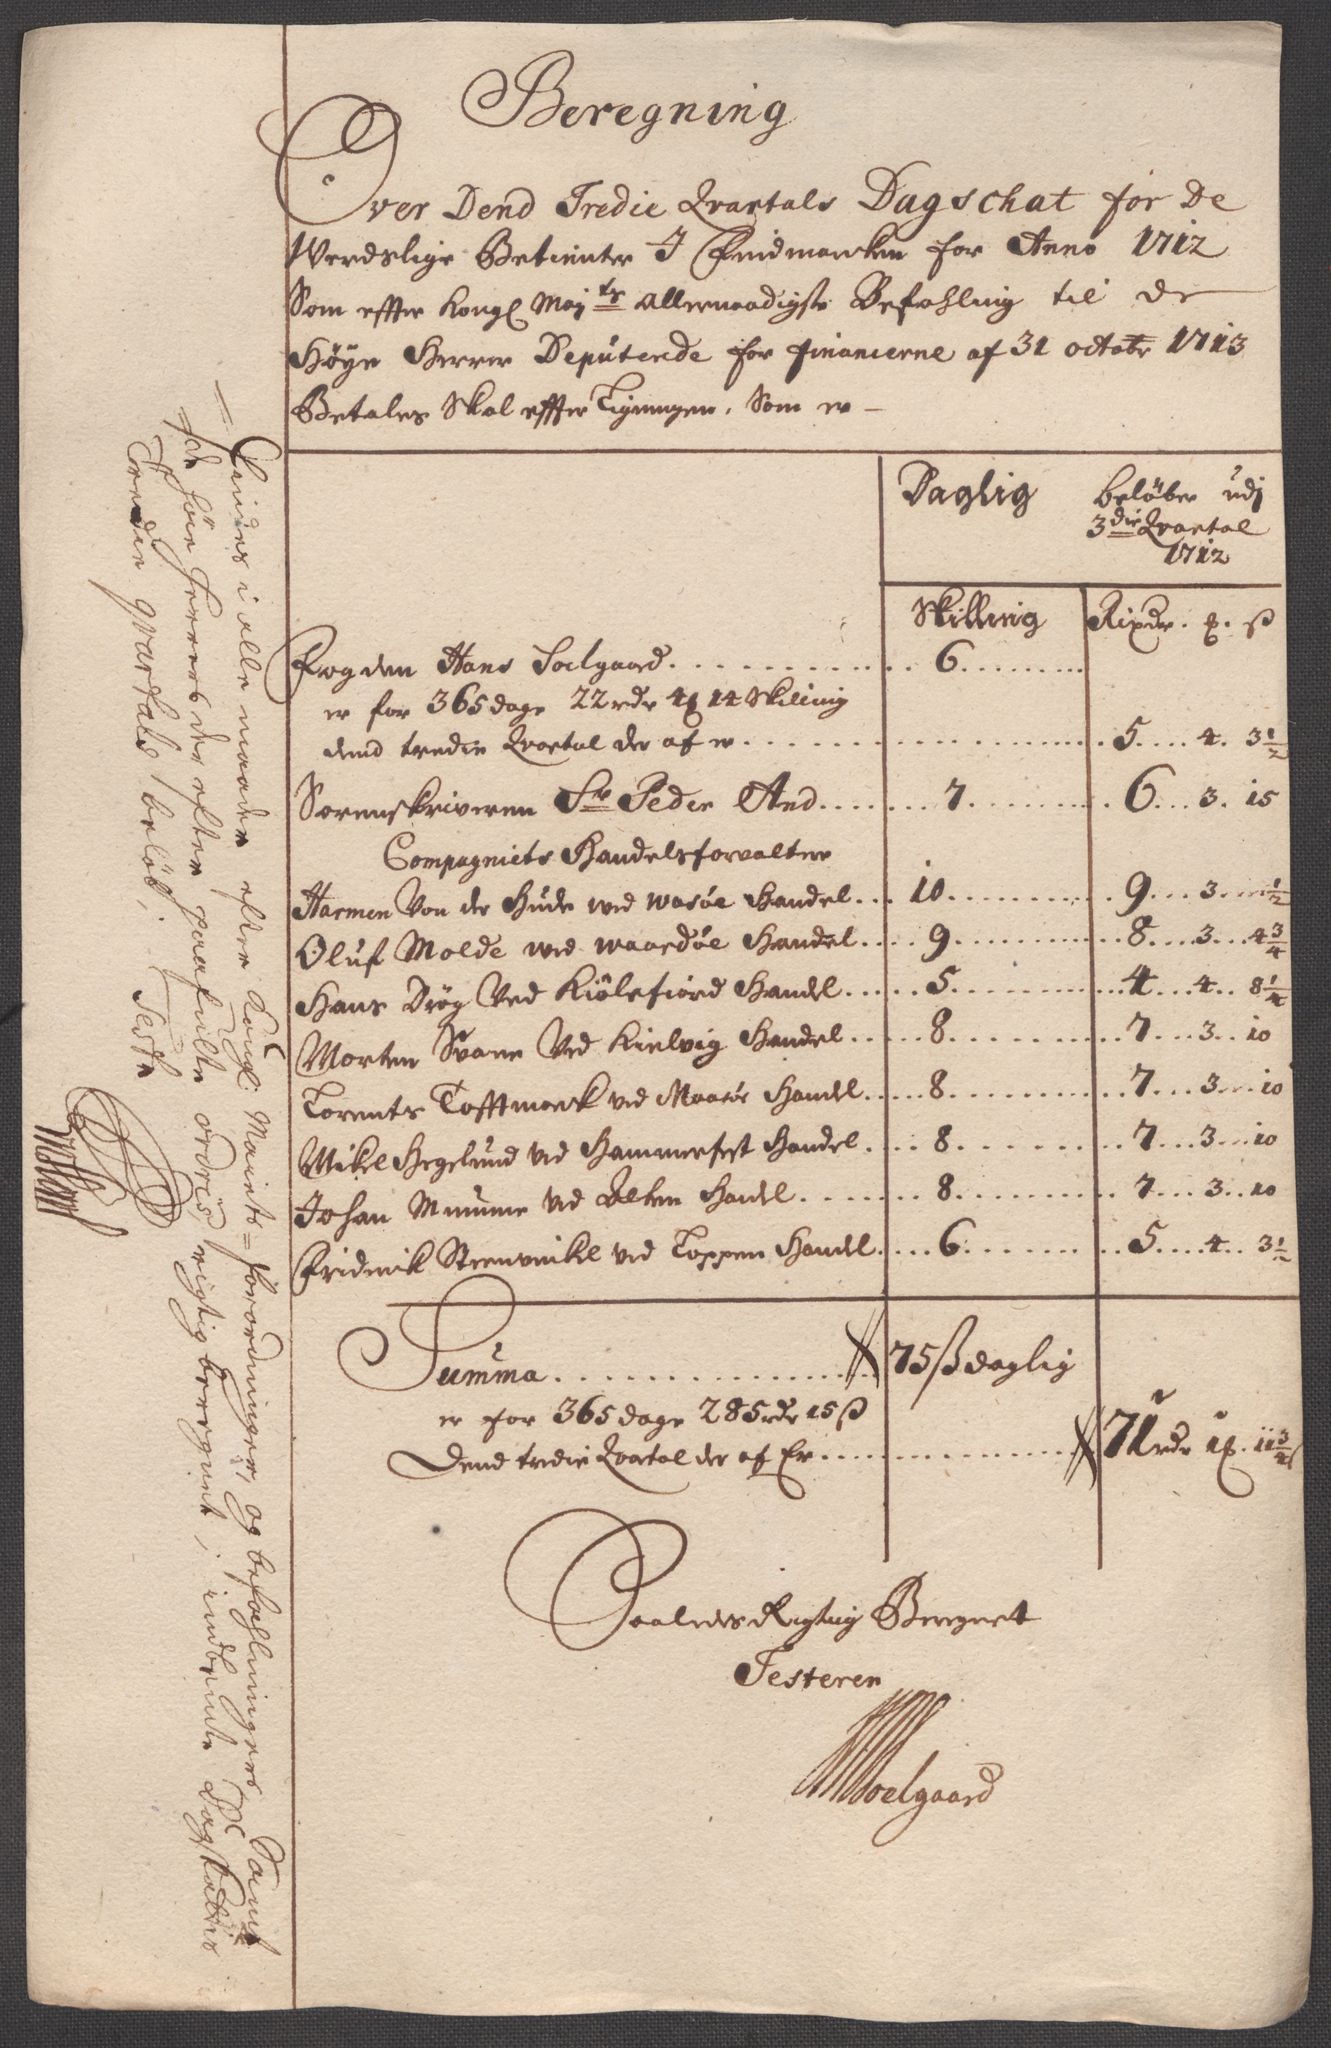 Beregning
Over Dend Tredie Qvartals Dagschat for De
Werdslige Betiente J Findmarcken for Anno 1712
Som effter Kongl May.ts allernaadigste Befahling til de
Høye Herrer Deputerede for financierne af 31 octobr 1713
Betales Skal effter Ligningen, Som er –
Daglig beløber udj
3die Qvartal
1712
Skilling Rixdr. ȝ. ß
Fogden Hans Soelgaard 6
er for 365 dage 22 rdr 4 ȝ 14 Skilling
dend tredie Qvartal der af er 5 4. 3½
Sorenskriveren Sr Peder And 7 6 3. 15
Compagniets Handelsforvalter
Harmen Von der Hude wed wasøe Handel 10 9 3 ½
Oluf Molde wed waardøe Handel 9 8 3 4¾
Hans Drög Ved Kiölefiord Handel 5 4 4 8¼
Morten Svane Ved Kielvig Handel 8 7 3 10
Lorents Tofftmark ved Maasøe Handel 8 7 3 10
Mikel Hegelund ved Hammerfest Handel 8 7 3 10
Johan Mumme ved Alten Handel 8 7 3 10
Friderik Steenvinkel ved Loppen Handel 6 5 4 3½
Summa 75 ß daglig
er for 365 dage 285 rdr 15 ß
Dend tredie Qvartal der af Er 71 rdr 1 ȝ. 11¾ ß
Saaledes Rigtig Beregnet
Testerer
HSoelgaard
Findes i alle maader efter Kongl: Mayets= forordninger, og befahlinger Samt
de høie Herrers der efter paafulte ordris, rigtig beregnet, indbemte Dagskatters
Tredie qvartals beløb, Teste